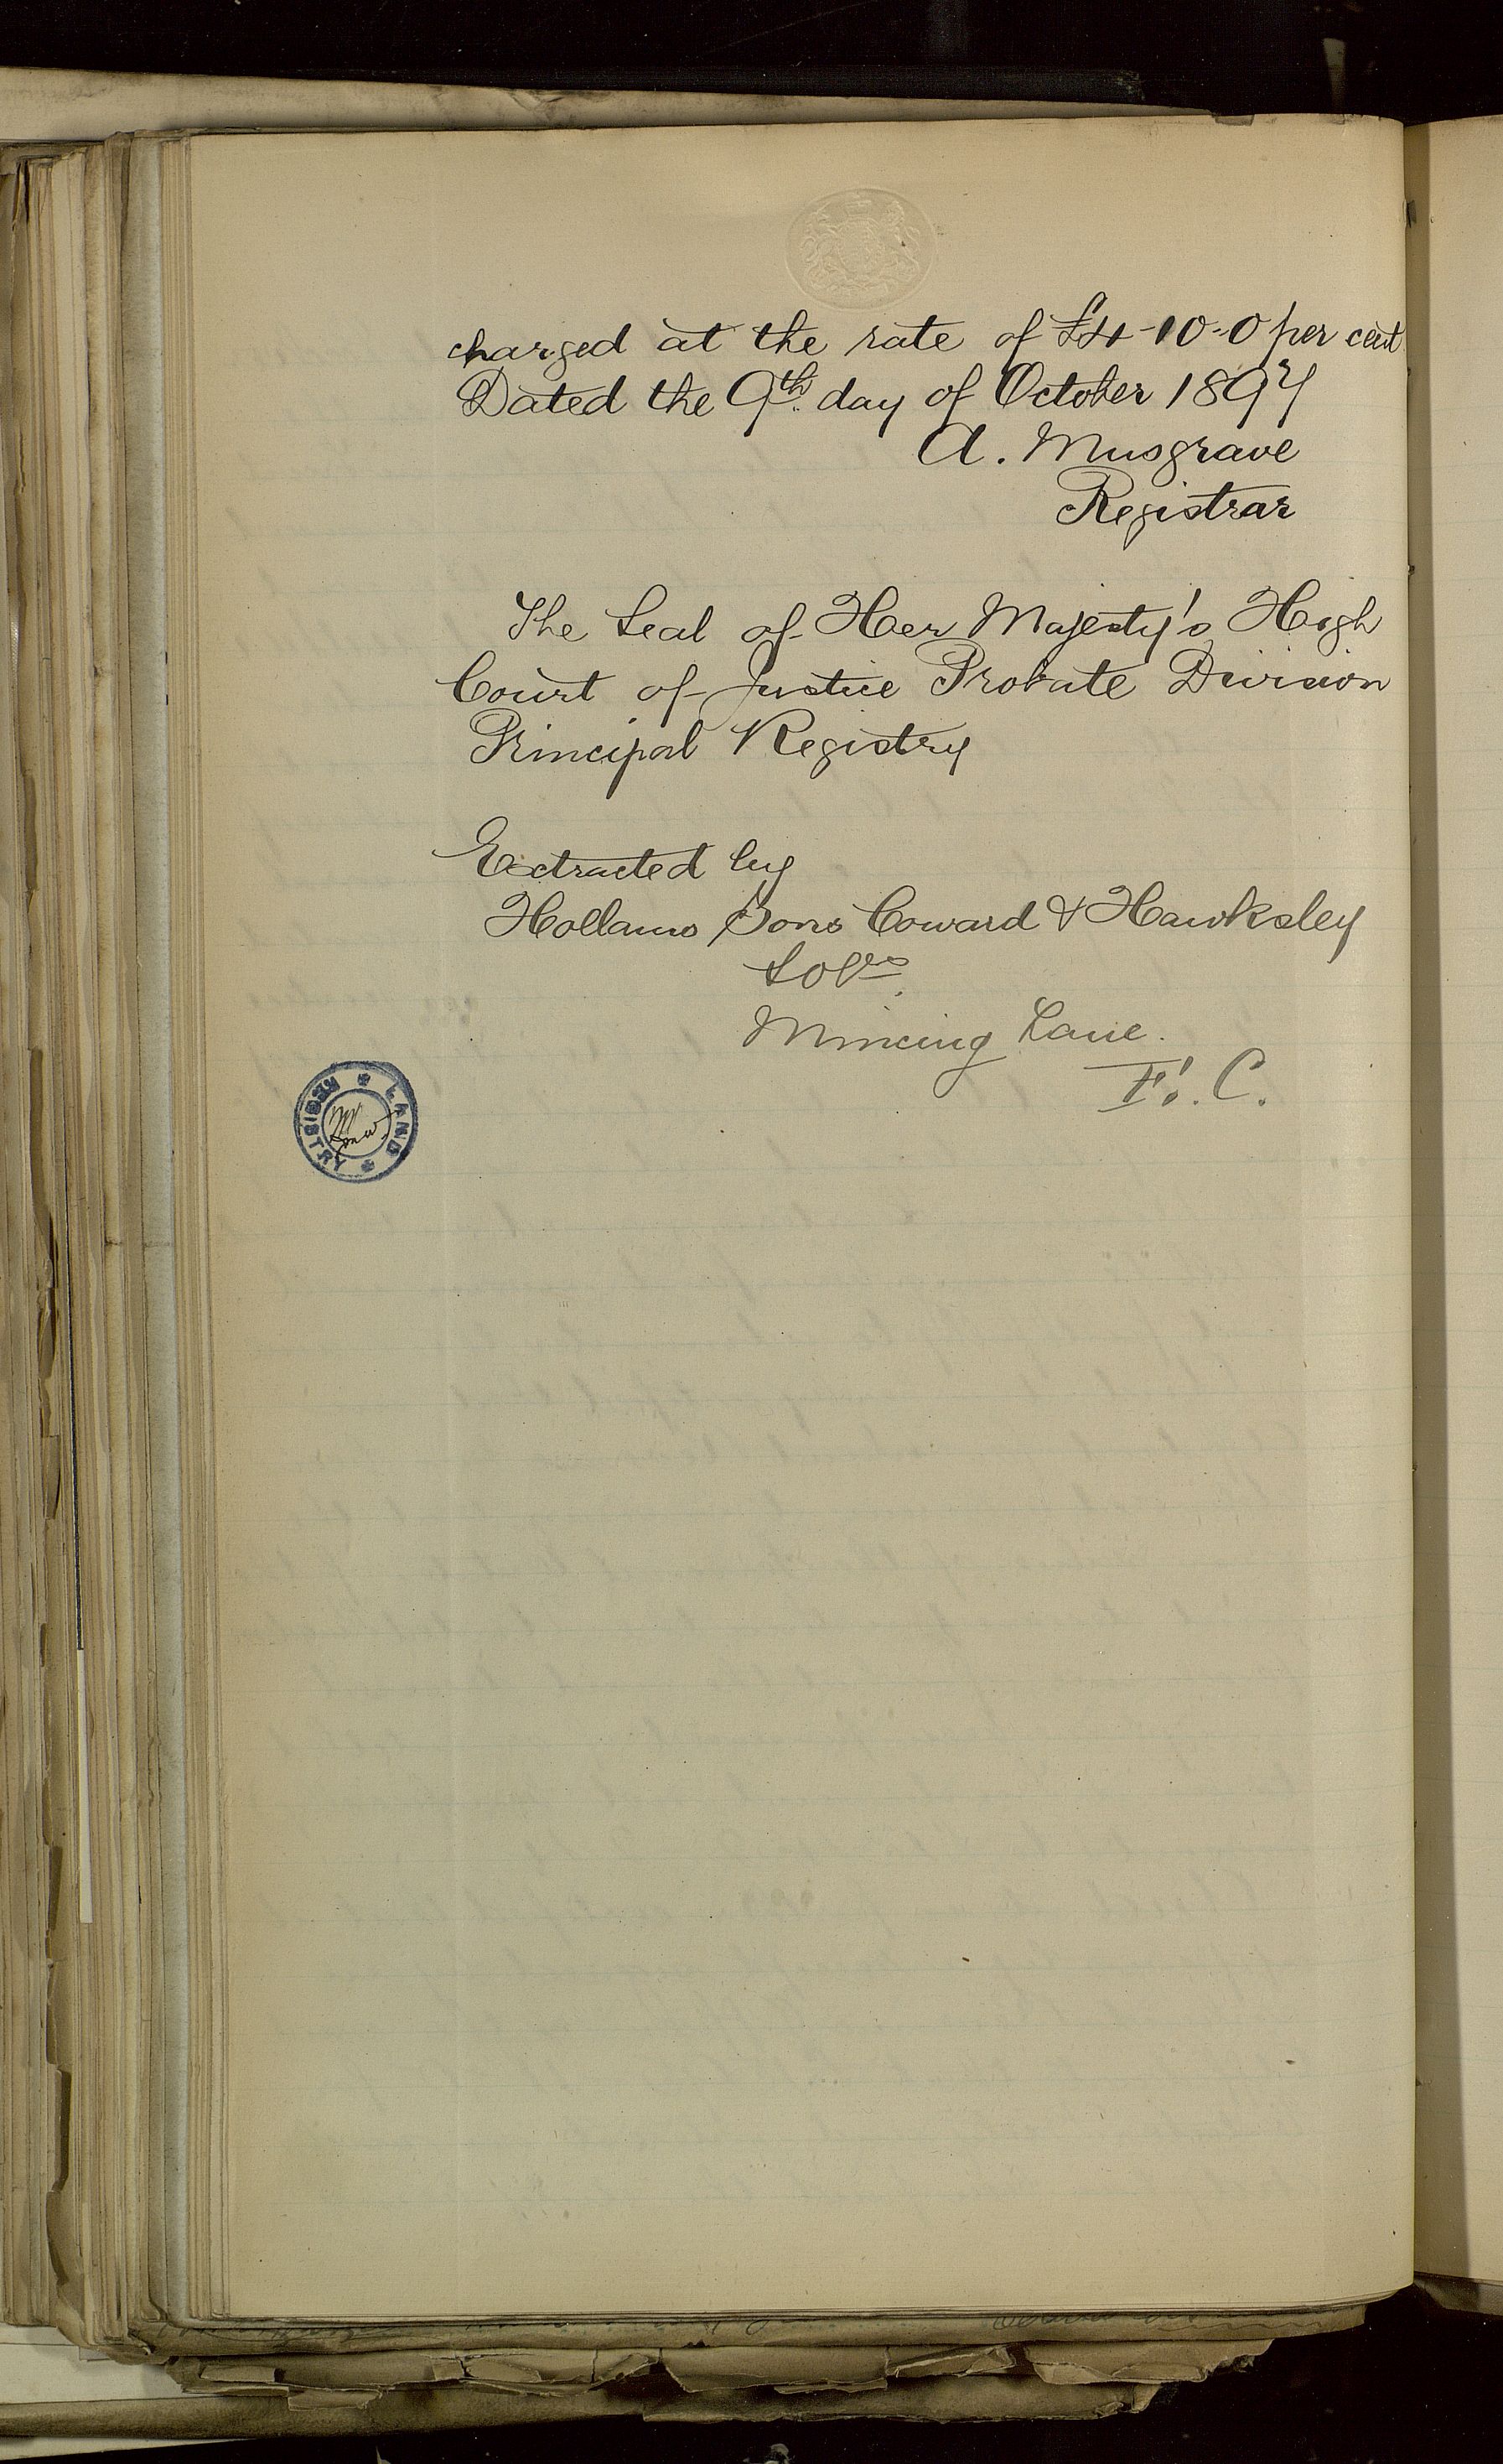 charged at the rate of £4-10-0 per cent
Dated the 9th. day of October 1897
A. Musgrave
Registrar
The Seal of Her Majesty's High
Court of Justice Probate Division
Principal Registry
Extracted by
Hollams Sons Coward & Hawksley
Solrs.
Mincing Lane.
E. C.
LAND REGISTRY